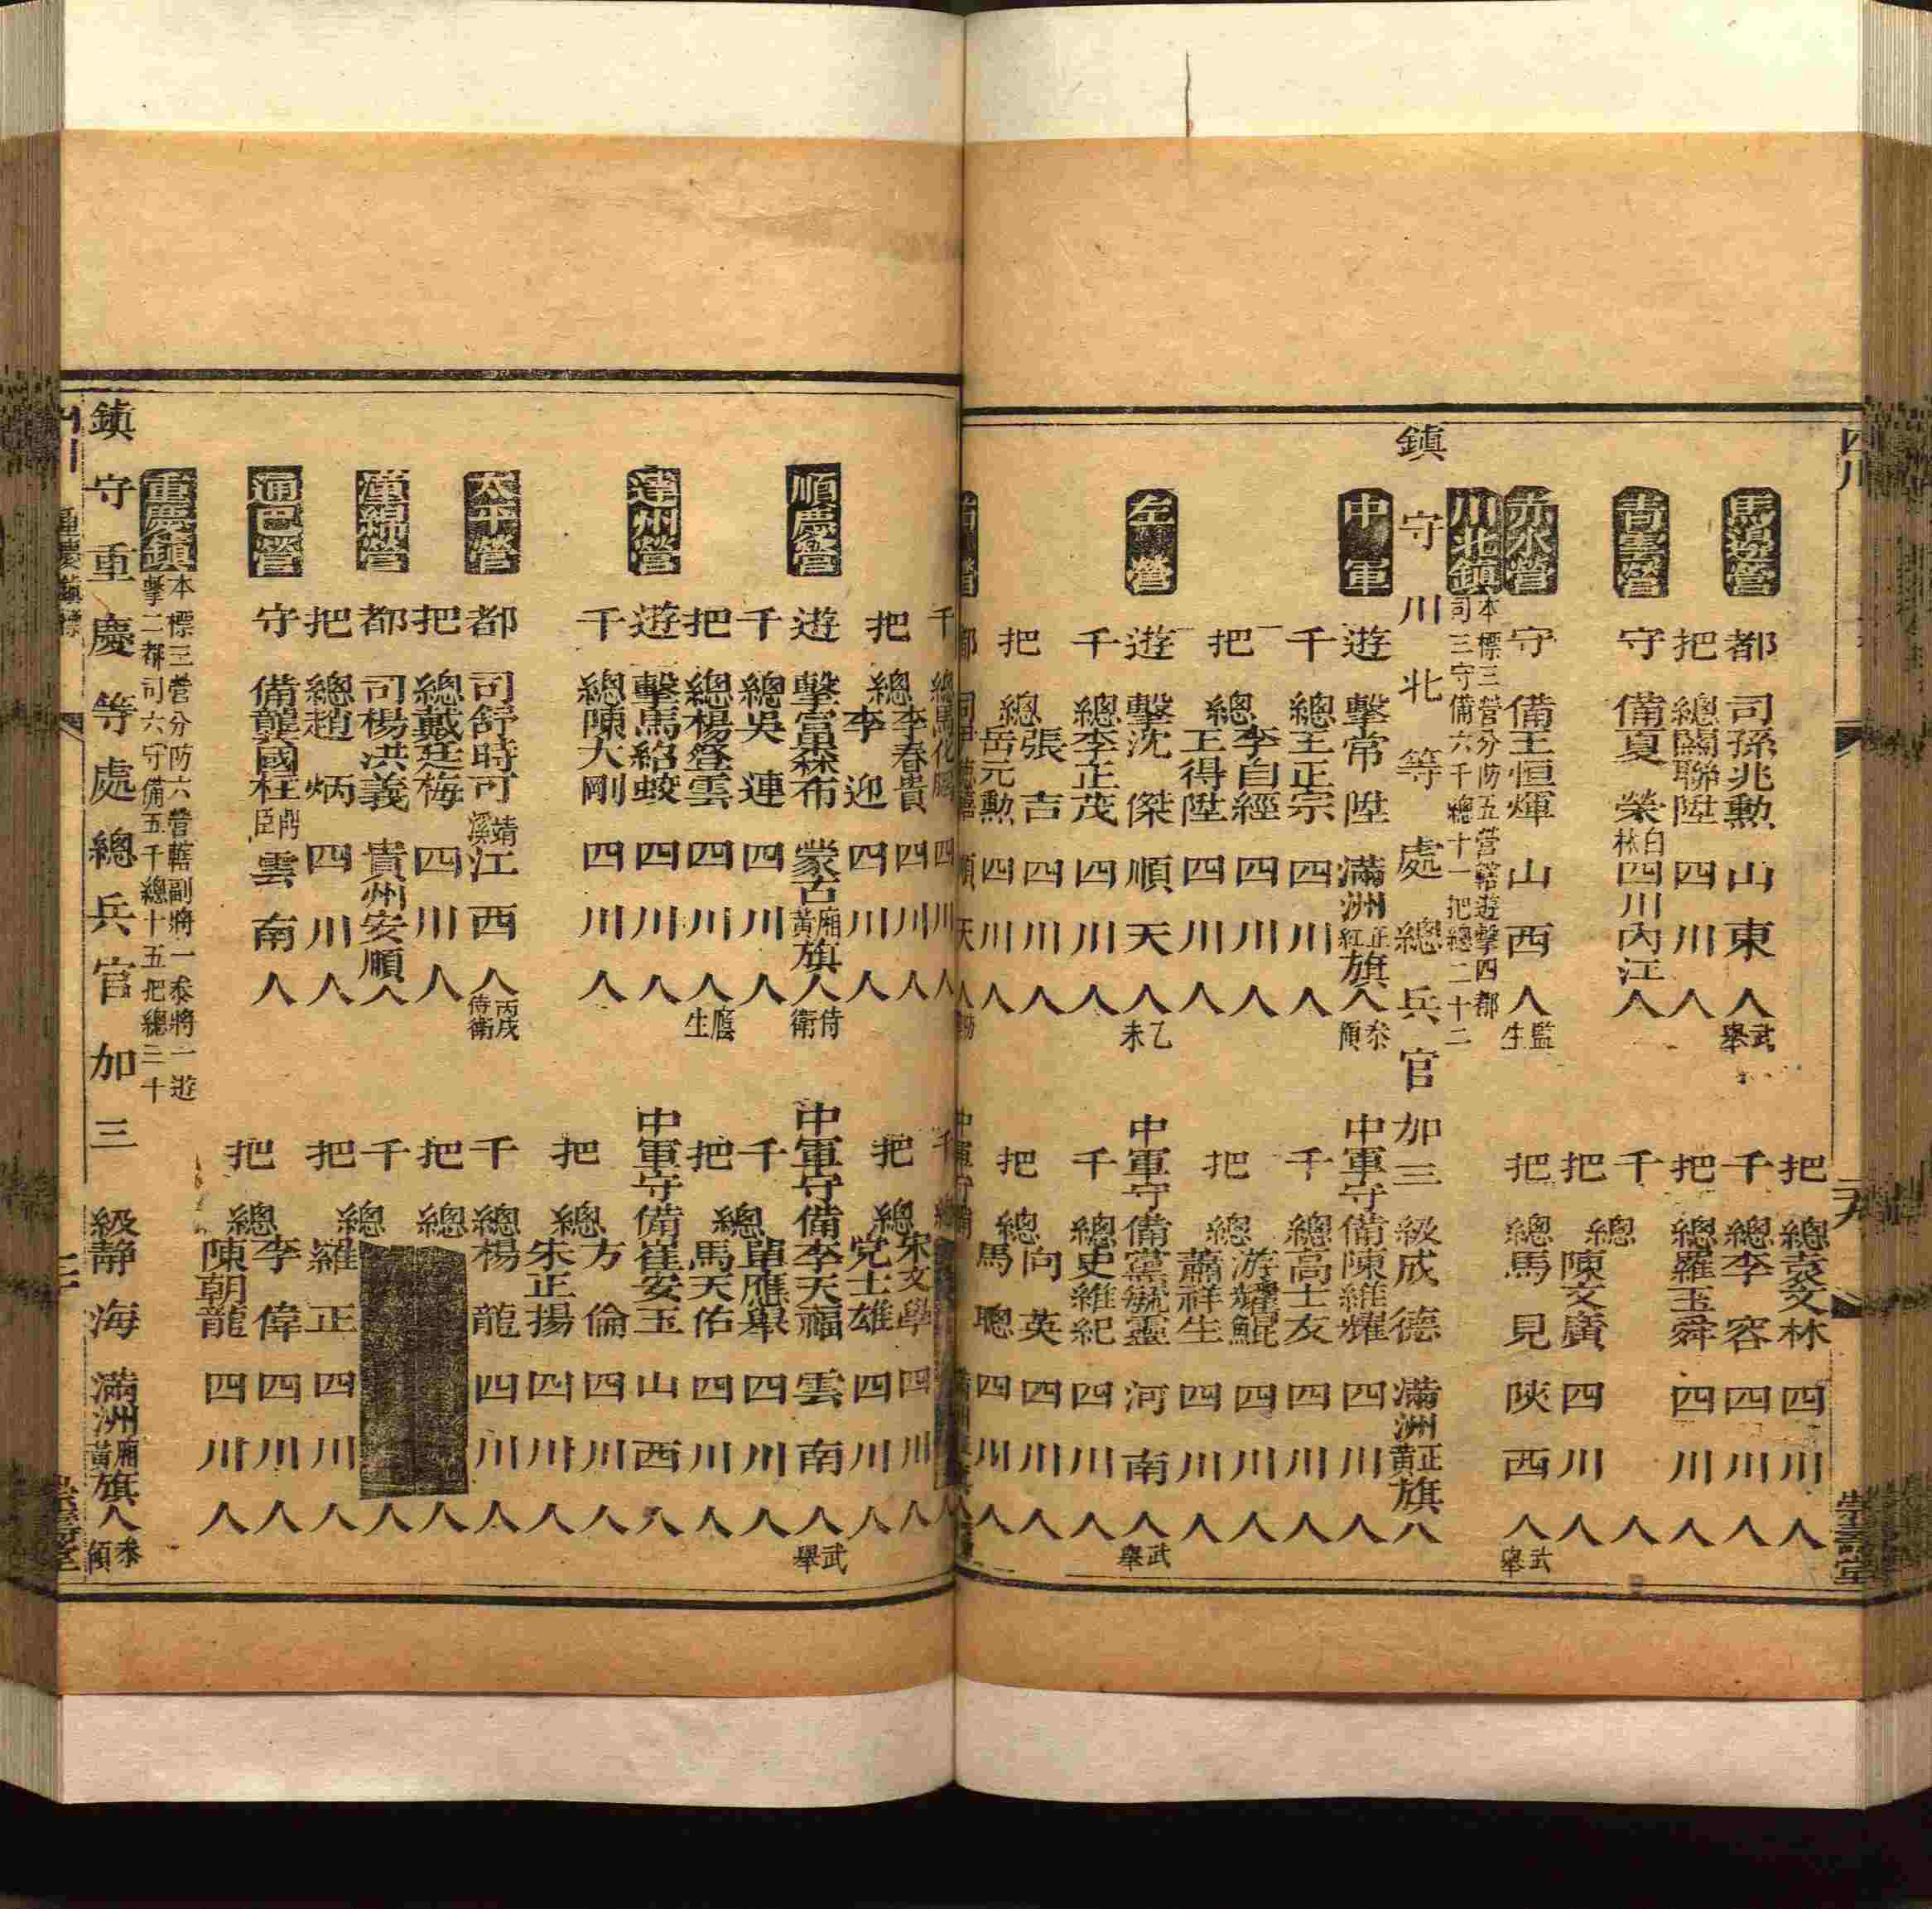 四川
馬邊營
都司孫兆勲 山東人 武舉
把總袁文林 四川人
把總關聯陞 四川人
千總李容 四川人
普雲營
守備夏榮 四川內江人
把總羅玉舜 四川人
千
把總陳文廣 四川人
赤水營
守備王恒煇 山西人 監生
把總馬見 陝西人 武舉
川北鎮
本標三營分防五營轄遊擊四都
司三守備六千總十一把總二十二
鎮守川北等處總兵官加三級成德 滿洲正黃旗人
中軍
遊擊常陞 滿洲正紅旗人 叅領
中軍守備陳維耀 四川人
千總王正宗 四川人
千總高士友 四川人
把總李自經 四川人
王得陞 四川人
把總游耀鯤 四川人
蕭祥生 四川人
左營
遊擊沈傑 順天人 乙未
中軍守備黨毓靈 河南人 武舉
千總李正茂 四川人
千總史維紀 四川人
把總張吉 四川人
岳元勲 四川人
把總向英 四川人
馬聰 四川人
崇壽堂
把總李春貴 四川人
李迎 四川人
把總宋文學 四川人
党士雄 四川人
順慶營
遊擊富森布 蒙古廂黃旗人 侍衛
中軍守備李天福 雲南人 武舉
千總吳連 四川人
千總單應舉 四川人
把總楊登雲 四川人 廕生
把總馬天佑 四川人
達州營
遊擊馬紹蛟 四川人
中軍守備崔安玉 山西人
千總陳大剛 四川人
把總方倫 四川人
朱正揚 四川人
太平營
都司舒時可 江西靖溪人 丙戌侍衛
千總楊龍 四川人
把總戴廷梅 四川人
把總 人
潼綿營
都司楊洪義 貴州安順人
千 人
把總趙炳 四川人
把總羅正 四川人
通巴營
守備龔國柱 雲南人
把總李偉 四川人
陳朝龍 四川人
重慶鎮
本標三營分防六營轄副將一叅將一遊
擊二都司六守備五千總十五把總三十
鎮守重慶等處總兵官加三級靜海 滿洲廂黃旗人 叅領